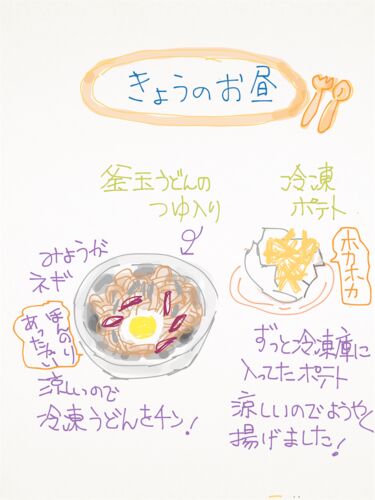 きょうのお昼
釜玉うどんの
つゆ入り
冷凍
ポテト
みょうが
ネギ
ほんのり
あったかい
ホカホカ
涼しいので
冷凍うどんをチン!
ずっと冷凍庫に
入ってたポテト
涼しいのでようやく
揚げました!